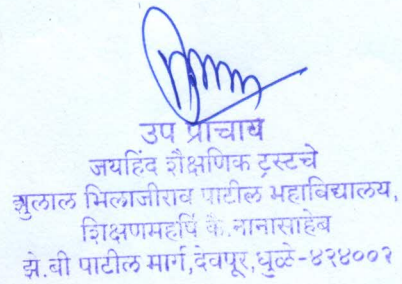 उप प्राचार्य
जयहिंद शैक्षणिक ट्रस्टचे
झुलाल भिलाजीराव पाटील महाविद्यालय,
शिक्षणमहर्षि कै.नानासाहेब
झे.बी पाटील मार्ग,देवपूर,धुळे-४२४००२